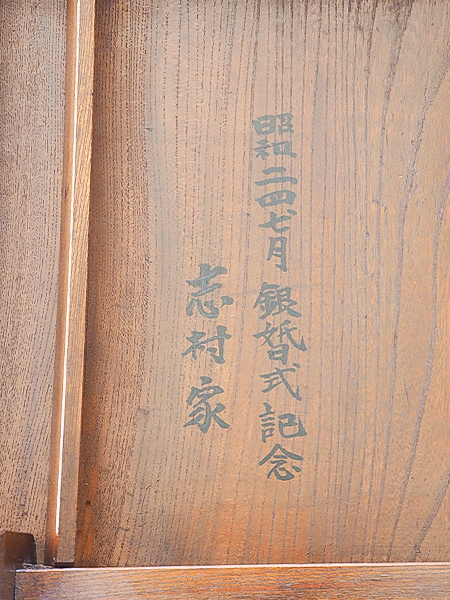 昭和二四七月 銀婚式記念
志村家